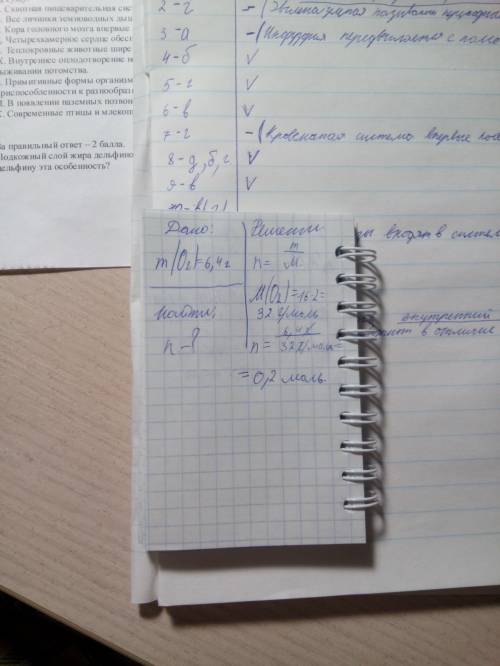 Сквозная пищеварительная сис
Все личинки земноводных ды
Кора головного мозга впервые
Четырехкамерное сердце обесп
Теплокровные животные шире
К. Внутреннее оплодотворение м
выживании потомства.
Примитивные формы организм
приспособленности к разнообраз
В появлении наземных позвон
К. Современные птицы и млекоп
за правильный ответ – 2 балла.
Подкожный слой жира дельфино
дельфину эта особенность?
2-г
3-а
4-б V
5-г V
6-в V
7-г -(Кровеносная система впервые поя
8-д,б,г V
9-в V
входят в систем
внутренний
в отличие
Дано:
m(O₂)=6,4г
Найти:
n-?
Решение
n= m/M
M(O₂)=16·2=
32 г/моль
n= 6,4г/32г/моль=
=0,2 моль.